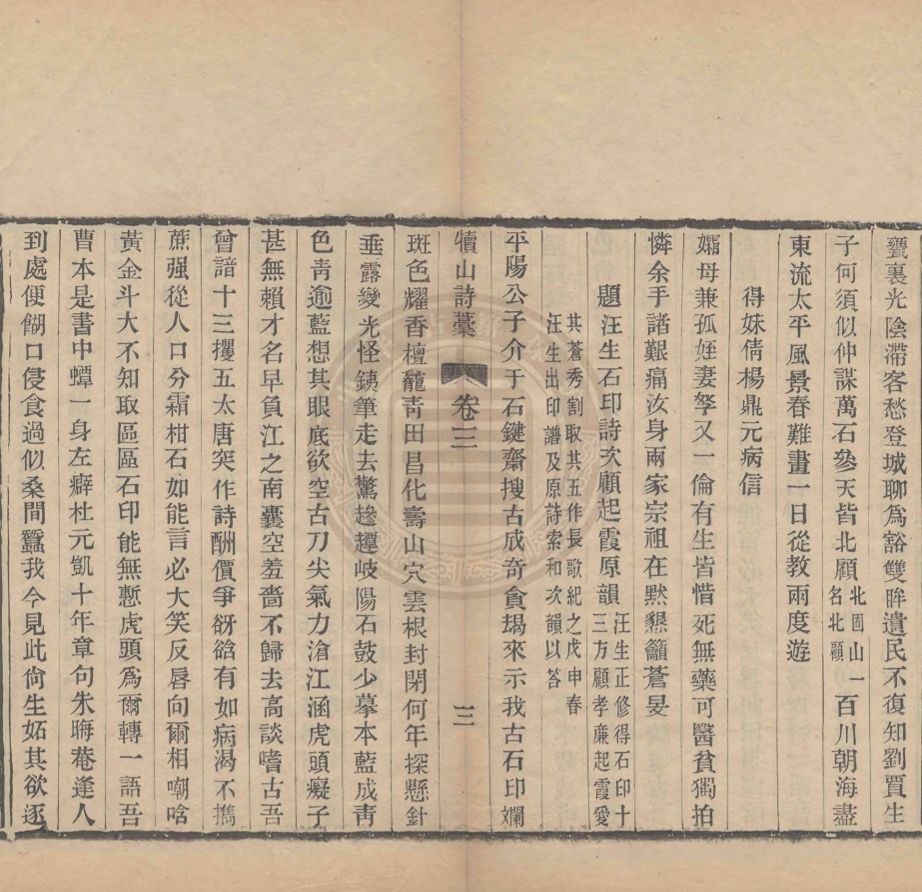 甕裏光陰滯客愁登城聊爲豁雙眸遺民不復知劉賈生
子何須似仲謀萬石參天皆北顧北固山一名北顧百川朝海盡
東流太平風景春難畫一日從教兩度遊
得妹倩楊鼎元病信
孀母兼孤姪妻孥又一倫有生皆惜死無藥可醫貧獨拍
憐余手諸艱痛汝身兩家宗祖在默懇籲蒼旻
題汪生石印詩次顧起霞原韻汪生正修得石印十三方顧孝廉起霞愛
其蒼秀割取其五作長歌紀之戊申春
汪生出印譜及原詩索和次韻以答
平陽公子介于石鍵齋搜古成奇貪朅來示我古石印斕
犢山詩藁
卷三
三
斑色耀香檀龕靑田昌化壽山穴雲根封閉何年探懸針
垂露變光怪銕筆走去驚趁趯岐陽石鼓少摹本藍成靑
色靑逾藍想其眼底欲空古刀尖氣力滄江涵虎頭癡子
甚無賴才名早負江之南囊空羞嗇不歸去高談嗜古吾
曾諳十三攫五太唐突作詩酬價爭谺谽有如病渴不擕
蔗强從人口分霜柑石如能言必大笑反唇向爾相嘲唅
黃金斗大不知取區區石印能無慙虎頭爲爾轉一語吾
曹本是書中蟫一身左癖杜元凱十年章句朱晦菴逢人
到處便餬口侵食過似桑間蠶我今見此尙生妬其欲逐